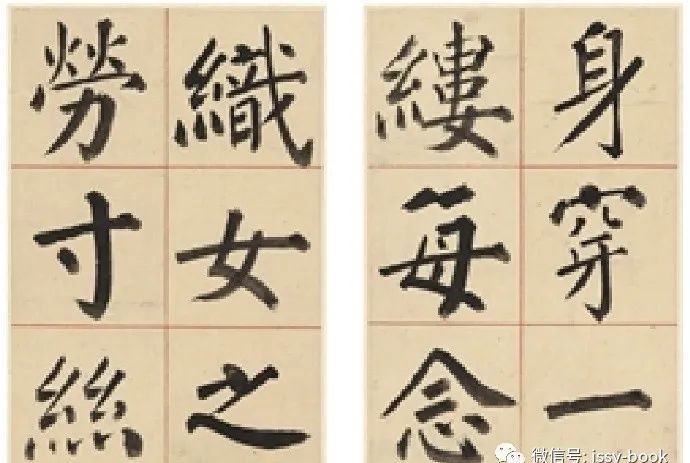 身穿一
縷每念
織女之
勞寸絲
微信号: jssv-book